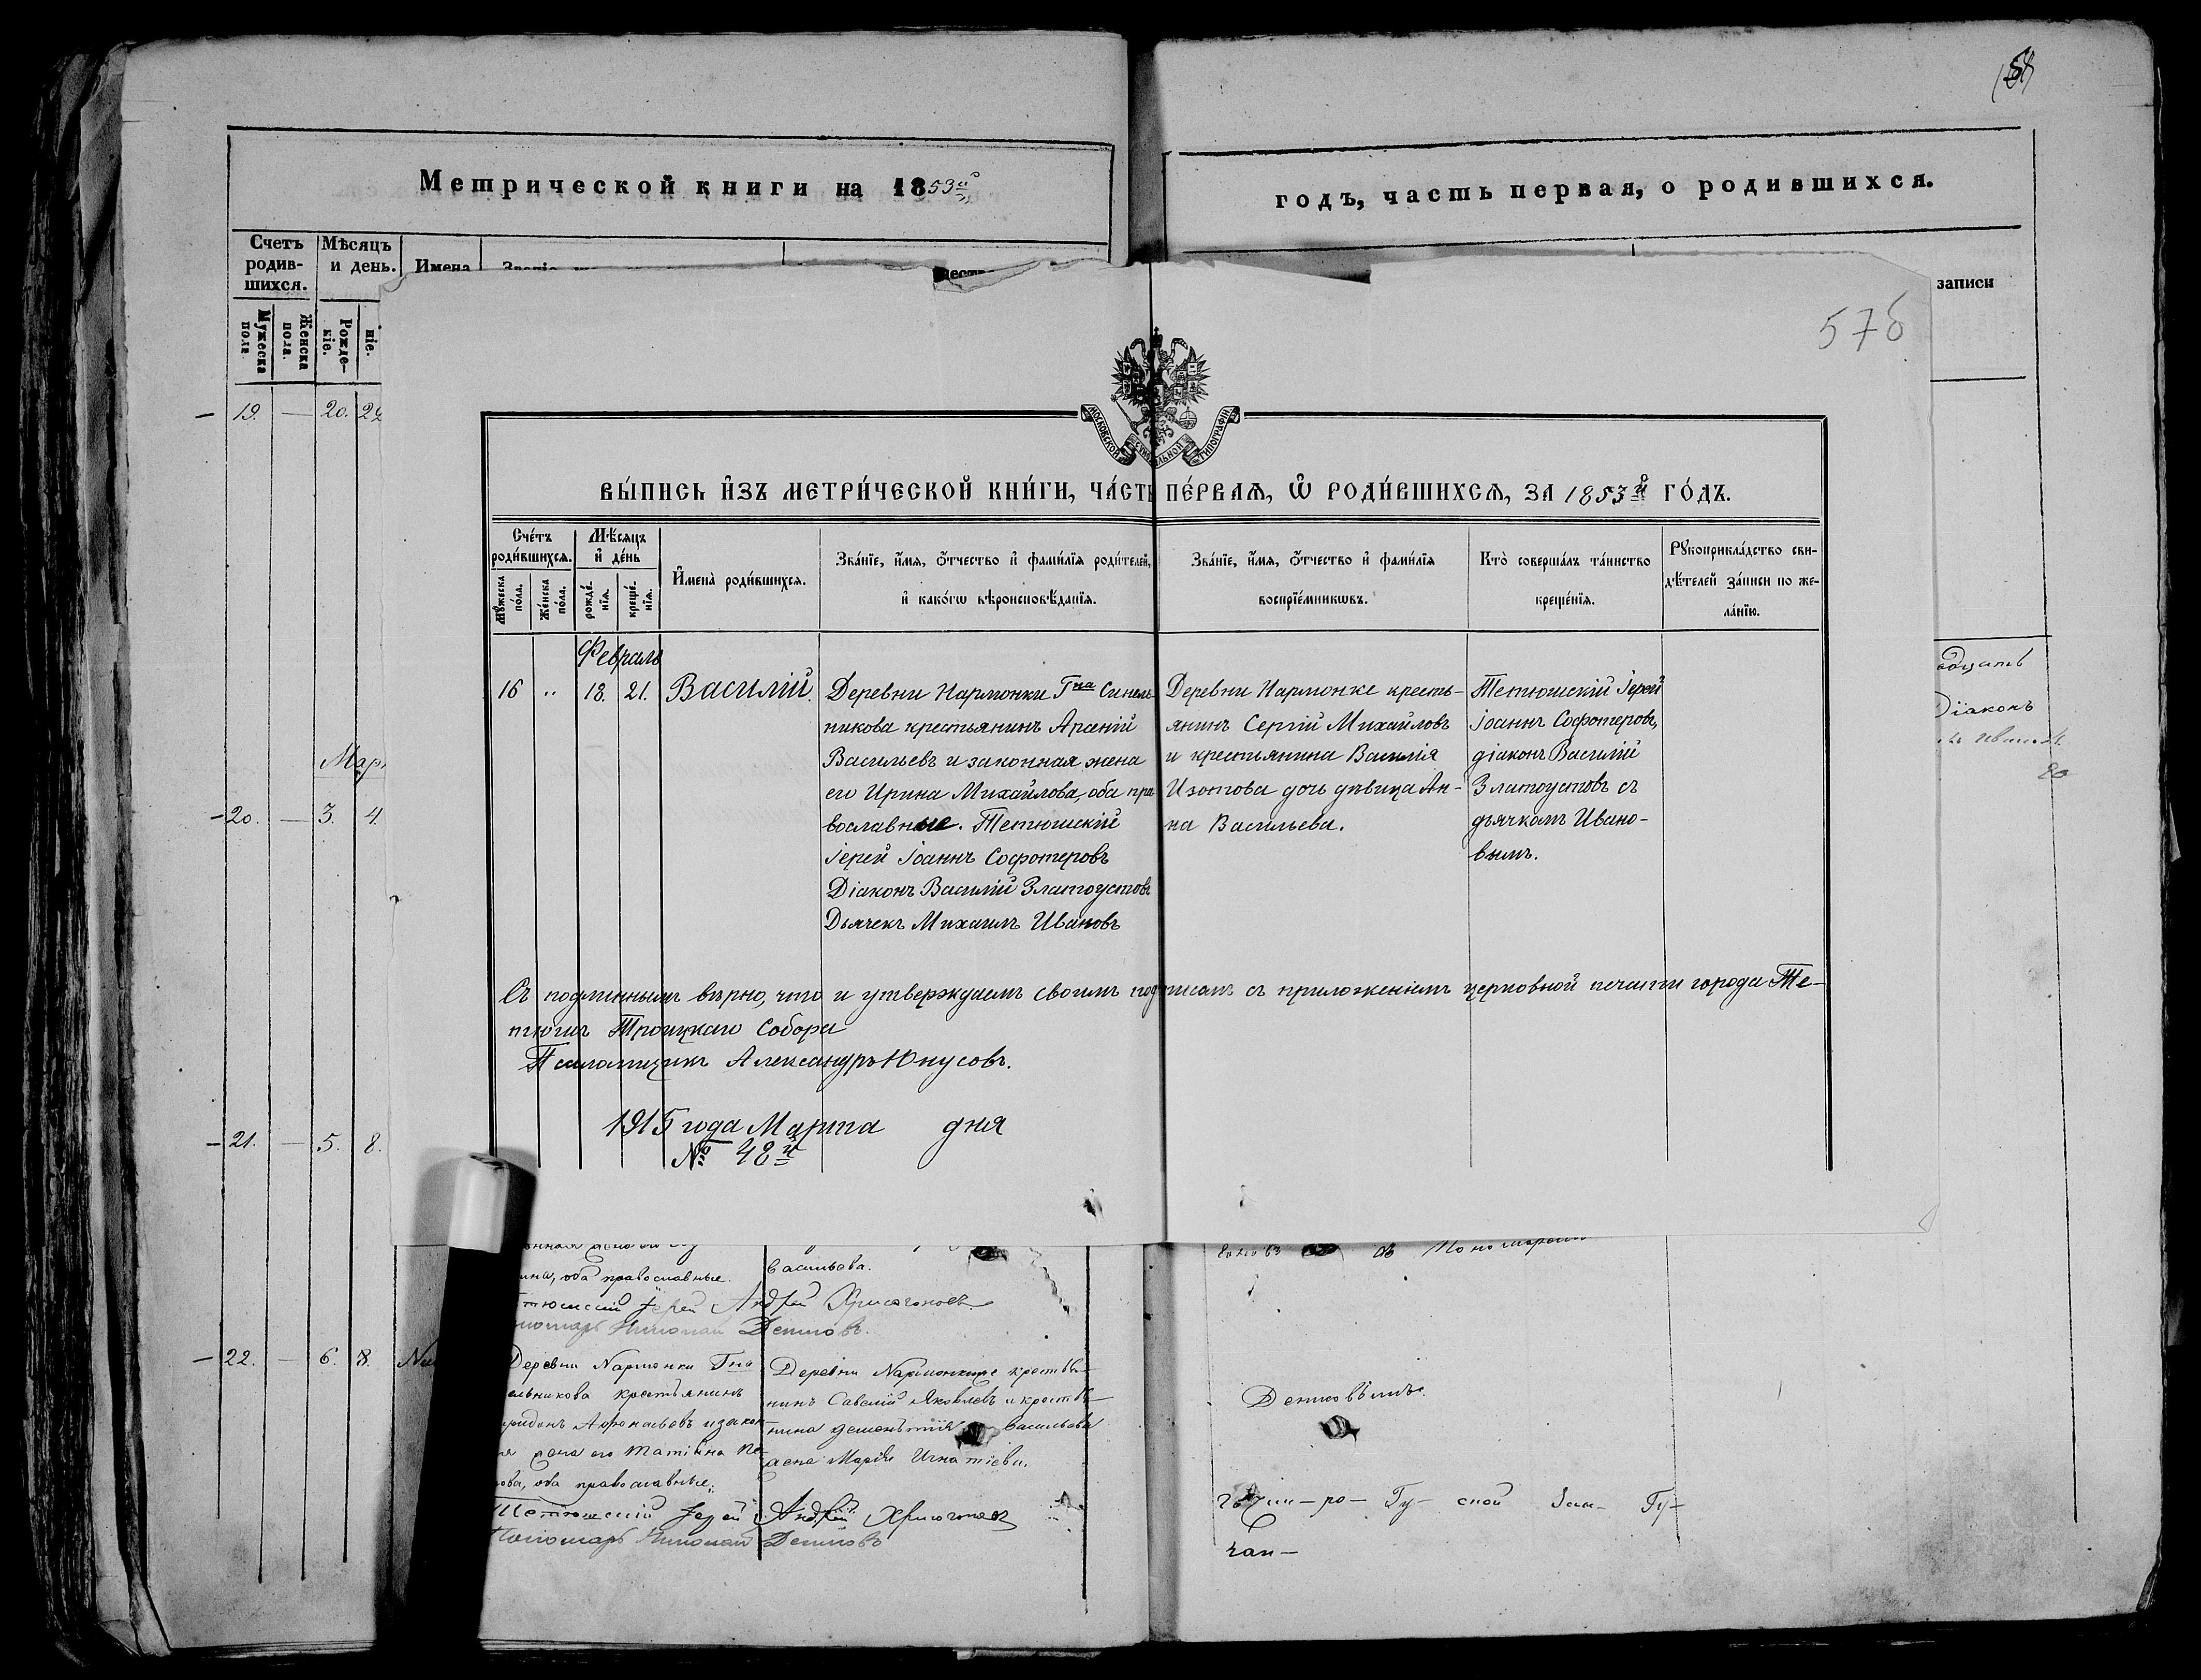 Метрической книги на 1853й
годъ, часть первая, о родившихся.
Счетъ родив-шихся.
Мѣсяцъ и день.
Имена
записи
Мужеска пола
Женска пола.
Рожде-ніе.
ніе.
19. — 20.
Мар
20. — 3. 4.
21. — 5. 8.
22. — 6. 8.
Діаконъ
57б
МОСКОВСКОЙ СѴНОДАЛЬНОЙ ТИПОГРАФІИ
ВЫ́ПИСЬ И҆ЗЪ МЕТРИ́ЧЕСКОЙ КНИ́ГИ, ЧА́СТЬ ПЕ́РВАѦ, Ѡ҆ РОДИ́ВШИХСѦ, ЗА 1853й ГО́ДЪ.
Сче́тъ роди́вшихсѧ.
Мѣ́сѧцъ и҆ де́нь
И҆мена̀ роди́вшихсѧ.
Зва́нїе, и҆́мѧ, ѻ҆́тчество и҆ фами́лїѧ роди́телей,
и҆ како́гѡ вѣроисповѣ́данїѧ.
Зва́нїе, и҆́мѧ, ѻ҆́тчество и҆ фами́лїѧ
воспрїе́мникѡвъ.
Кто̀ соверша́лъ та́инство
креще́нїѧ.
Рꙋкоприкла́дство сви-
дѣ́телей за́писи по же-
ла́нїю.
Мꙋ́жеска по́ла.
Же́нска по́ла.
рожде́-нїѧ.
креще́-нїѧ.
Февраль
16 „ 18. 21. Василій.
Деревни Нармонки Гна Синель-
никова крестьянинъ Арсеній
Васильевъ и законная жена
его Ирина Михайлова, оба пра-
вославные. Тетюшскій
іерей Іоаннъ Софотеровъ
Діаконъ Василій Златоустовъ
Дьячекъ Михаилъ Ивановъ
Деревни Нармонке кресть-
янинъ Сергій Михайловъ
и крестьянина Василія
Изотова дочь дѣвица Ан-
на Васильева.
Тетюшскій Іерей
Іоаннъ Софотеровъ,
діаконъ Василій
Златоустовъ съ
дьячкомъ Ивано-
вымъ.
Съ подлиннымъ вѣрно, что и утверждаемъ своимъ подписомъ съ приложеніемъ церковной печати города Те-
тюшъ Троицкаго Собора
Псаломщикъ Александръ Юнусовъ.
1915 года Марта дня
№ 48й
ина, оба православные.
васильева.
Іерей Андрей Хрисогоновъ
Николай Демтовъ.
Деревни Нармонки Гна
ельникова крестьянинъ
Афонасьевъ и закон-
жена его Татіана
ова, оба православные.
Тетюшскій Іерей Андрей Хрисогоновъ
Пономарь Николай Демтовъ
Деревни Нармонки кресть-
нинъ Савелій Яковлевъ и кресть-
нина Дементія Васильева
жена Марія Игнатіева.
Демтовымъ.